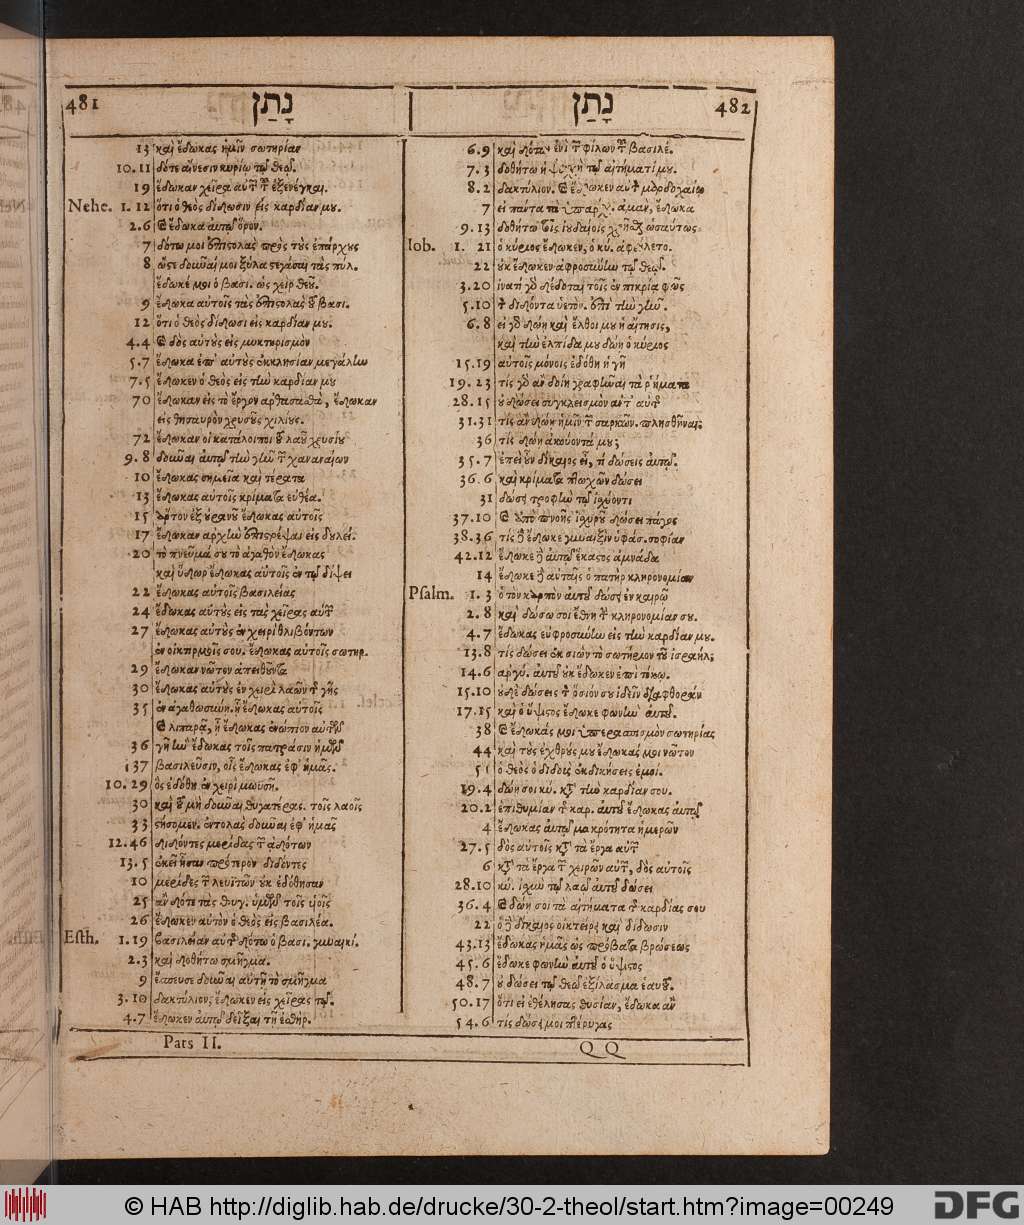 481 נָתַן
13 καὶ ἔδωκας ἡμῖν σωτηρίαν
10. 11 δότε αἴνεσιν κυρίῳ τῷ θεῷ.
19 ἔδωκαν χεῖρα αὐτῶν τοῦ ἐξενέγκαι.
Nehe. 1. 12 ὅτι ὁ θεὸς δίδωσιν εἰς καρδίαν μου.
2. 6 καὶ ἔδωκα αὐτῷ ὅρον.
7 δότω μοι ἐπιστολὰς πρὸς τοὺς ἐπάρχους
8 ὥστε δοῦναί μοι ξύλα στεγάσαι τὰς πύλ.
ἔδωκέ μοι ὁ βασι. ὡς χεὶρ θεοῦ.
9 ἔδωκα αὐτοῖς τὰς ἐπιστολὰς τοῦ βασι.
12 ὅτι ὁ θεὸς δίδωσι εἰς καρδίαν μου.
4. 4 καὶ δὸς αὐτοὺς εἰς μυκτηρισμὸν
5. 7 ἔδωκα ἐπ' αὐτοὺς ἐκκλησίαν μεγάλην
7. 5 ἔδωκεν ὁ θεὸς εἰς τὴν καρδίαν μου
70 ἔδωκαν εἰς τὸ ἔργον ἀρθασαθὰ, ἔδωκαν
εἰς θησαυρὸν χρυσοῦς χιλίους.
72 ἔδωκαν οἱ κατάλοιποι τοῦ λαοῦ χρυσίου
9. 8 δοῦναι αὐτῷ τὴν γῆν τῶν χαναναίων
10 ἔδωκας σημεῖα καὶ τέρατα
13 ἔδωκας αὐτοῖς κρίματα εὐθέα.
15 ἄρτον ἐξ οὐρανοῦ ἔδωκας αὐτοῖς
17 ἔδωκαν ἀρχὴν ἐπιστρέψαι εἰς δουλεί.
20 τὸ πνεῦμά σου τὸ ἀγαθὸν ἔδωκας
καὶ ὕδωρ ἔδωκας αὐτοῖς ἐν τῷ δίψει
22 ἔδωκας αὐτοῖς βασιλείας
24 ἔδωκας αὐτοὺς εἰς τὰς χεῖρας αὐτῶν
27 ἔδωκας αὐτοὺς ἐν χειρὶ θλιβόντων
ἐν οἰκτιρμοῖς σου. ἔδωκας αὐτοῖς σωτηρ.
29 ἔδωκαν νῶτον ἀπειθοῦντα
30 ἔδωκας αὐτοὺς ἐν χειρὶ λαῶν τῆς γῆς
35 ἐν ἀγαθωσύνη. ᾗ ἔδωκας αὐτοῖς
καὶ λιπαρᾷ, ᾗ ἔδωκας ἐνώπιον αὐτῶν
36 γῆ ἣν ἔδωκας τοῖς πατράσιν ἡμῶν
37 βασιλεῦσιν, οἷς ἔδωκας ἐφ' ἡμᾶς.
10. 29 ὃς ἐδόθη ἐν χειρὶ μωυσῆ.
30 καὶ τοῦ μὴ δοῦναι θυγατέρας. τοῖς λαοῖς
33 στήσομεν. ἐντολὰς δοῦναι ἐφ' ἡμᾶς
12. 46 διδόντες μερίδας τῶν ᾀδόντων
13. 5 ἐκεῖ ἦσαν πρότερον διδόντες
10 μερίδες τῶν λευϊτῶν οὐκ ἐδόθησαν
25 ἂν δότε τὰς θυγ. ὑμῶν τοῖς υἱοῖς
26 ἔδωκεν αὐτὸν ὁ θεὸς εἰς βασιλέα.
Esth. 1. 19 βασιλείαν αὐτῆς δότω ὁ βασι. γυναικί.
2. 3 καὶ δοθήτω σμῆγμα.
9 ἔσπευσε δοῦναι αὐτῇ τὸ σμῆγμα
3. 10 δακτύλιον, ἔδωκεν εἰς χεῖρας τῷ.
4. 7 ἔδωκεν αὐτῷ δεῖξαι τῇ ἐσθήρ.
Pars II.
נָתַן 482
6. 9 καὶ δότω ἑνὶ τῶν φίλων τοῦ βασιλέ.
7. 3 δοθήτω ἡ ψυχὴ τῷ αἰτήματί μου.
8. 2 δακτύλιον. καὶ ἔδωκεν αὐτὸν μαρδοχαίῳ
7 εἰ πάντα τὰ ὑπάρχ. ἀμὰν, ἔδωκα
9. 13 δοθήτω τοῖς ἰουδαίοις χρῆσθαι ὡσαύτως
Iob. 1. 21 ὁ κύριος ἔδωκεν, ὁ κύ. ἀφείλετο.
22 οὐκ ἔδωκεν ἀφροσύνην τῷ θεῷ.
3. 20 ἱνατί γὰρ δέδοται τοῖς ἐν πικρίᾳ φῶς
5. 10 τὸν διδόντα ὑετὸν. ἐπὶ τὴν γῆν.
6. 8 εἰ γὰρ δῴη καὶ ἔλθοι μου ἡ αἴτησις,
καὶ τὴν ἐλπίδα μου δῴη ὁ κύριος
15. 19 αὐτοῖς μόνοις ἐδόθη ἡ γῆ
19. 23 τίς γὰρ ἂν δοίη γραφῆναι τὰ ῥήματα
28. 15 οὐ δώσει συγκλεισμὸν ἀντ' αὐτῆς
31. 31 τίς ἂν δῴη ἡμῖν τῶν σαρκῶν. πλησθῆναι;
36 τίς δῴη ἀκούοντά μου;
35. 7 ἐπεὶ οὖν δίκαιος εἶ, τί δώσεις αὐτῷ.
36. 6 καὶ κρίματα πτωχῶν δώσει
31 δώσει τροφὴν τῷ ἰσχύοντι
37. 10 καὶ ἀπὸ πνοῆς ἰσχυροῦ δώσει πάγος
38. 36 τίς δὲ ἔδωκε γυναιξὶν ὑφάσ. σοφίαν
42. 12 ἔδωκε δὲ αὐτῷ ἕκαστος ἀμνάδα
14 ἔδωκε δὲ αὐταῖς ὁ πατὴρ κληρονομίαν
Psalm. 1. 3 ὃ τὸν καρπὸν αὐτοῦ δώσει ἐν καιρῷ
2. 8 καὶ δώσω σοι ἔθνη τὴν κληρονομίαν σου.
4. 7 ἔδωκας εὐφροσύνην εἰς τὴν καρδίαν μου.
13. 8 τίς δώσει ἐκ σιὼν τὸ σωτήριον τοῦ ἰσραήλ;
14. 6 ἀργύ. αὐτοῦ οὐκ ἔδωκεν ἐπὶ τόκῳ.
15. 10 οὐδὲ δώσεις τὸν ὅσιόν σου ἰδεῖν διαφθορὰν
17. 15 καὶ ὁ ὕψιστος ἔδωκε φωνὴν αὐτοῦ.
38 καὶ ἔδωκάς μοι ὑπερασπισμὸν σωτηρίας
44 καὶ τοὺς ἐχθρούς μου ἔδωκάς μοι νῶτον
51 ὁ θεὸς ὁ διδοὺς ἐκδικήσεις ἐμοί.
19. 4 δῴη σοι κύ. κατὰ τὴν καρδίαν σου.
20. 2 ἐπιθυμίαν τῆς καρ. αὐτοῦ ἔδωκας αὐτῷ
4 ἔδωκας αὐτῷ μακρότητα ἡμερῶν
27. 5 δὸς αὐτοῖς κατὰ τὰ ἔργα αὐτῶν
6 κατὰ τὰ ἔργα τῶν χειρῶν αὐτῶν, δὸς αὐτοῖς
28. 10 κύ. ἰσχὺν τῷ λαῷ αὐτοῦ δώσει
36. 4 καὶ δῴη σοι τὰ αἰτήματα τῆς καρδίας σου
22 ὁ δὲ δίκαιος οἰκτείρει καὶ δίδωσιν
43. 13 ἔδωκας ἡμᾶς ὡς πρόβατα βρώσεως
45. 6 ἔδωκε φωνὴν αὐτοῦ ὁ ὕψιστος
48. 7 οὐ δώσει τῷ θεῷ ἐξίλασμα ἑαυτοῦ.
50. 17 ὅτι εἰ ἠθέλησας θυσίαν, ἔδωκα ἂν
54. 6 τίς δώσει μοι πτέρυγας
QQ
© HAB http://diglib.hab.de/drucke/30-2-theol/start.htm?image=00249
DFG